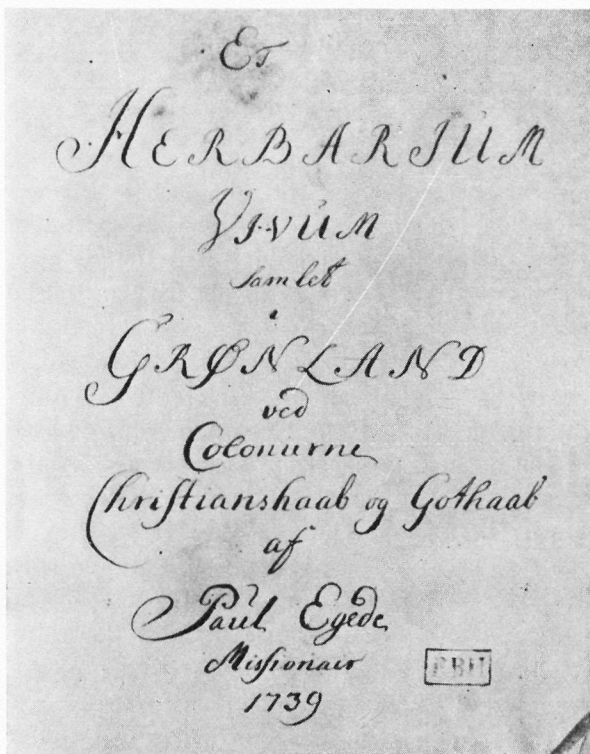 Et
HERBARIUM
VIVUM
samlet
i
GRØNLAND
ved
Colonierne
Christianshaab og Gothaab
af
Paul Egede
Missionair
1739